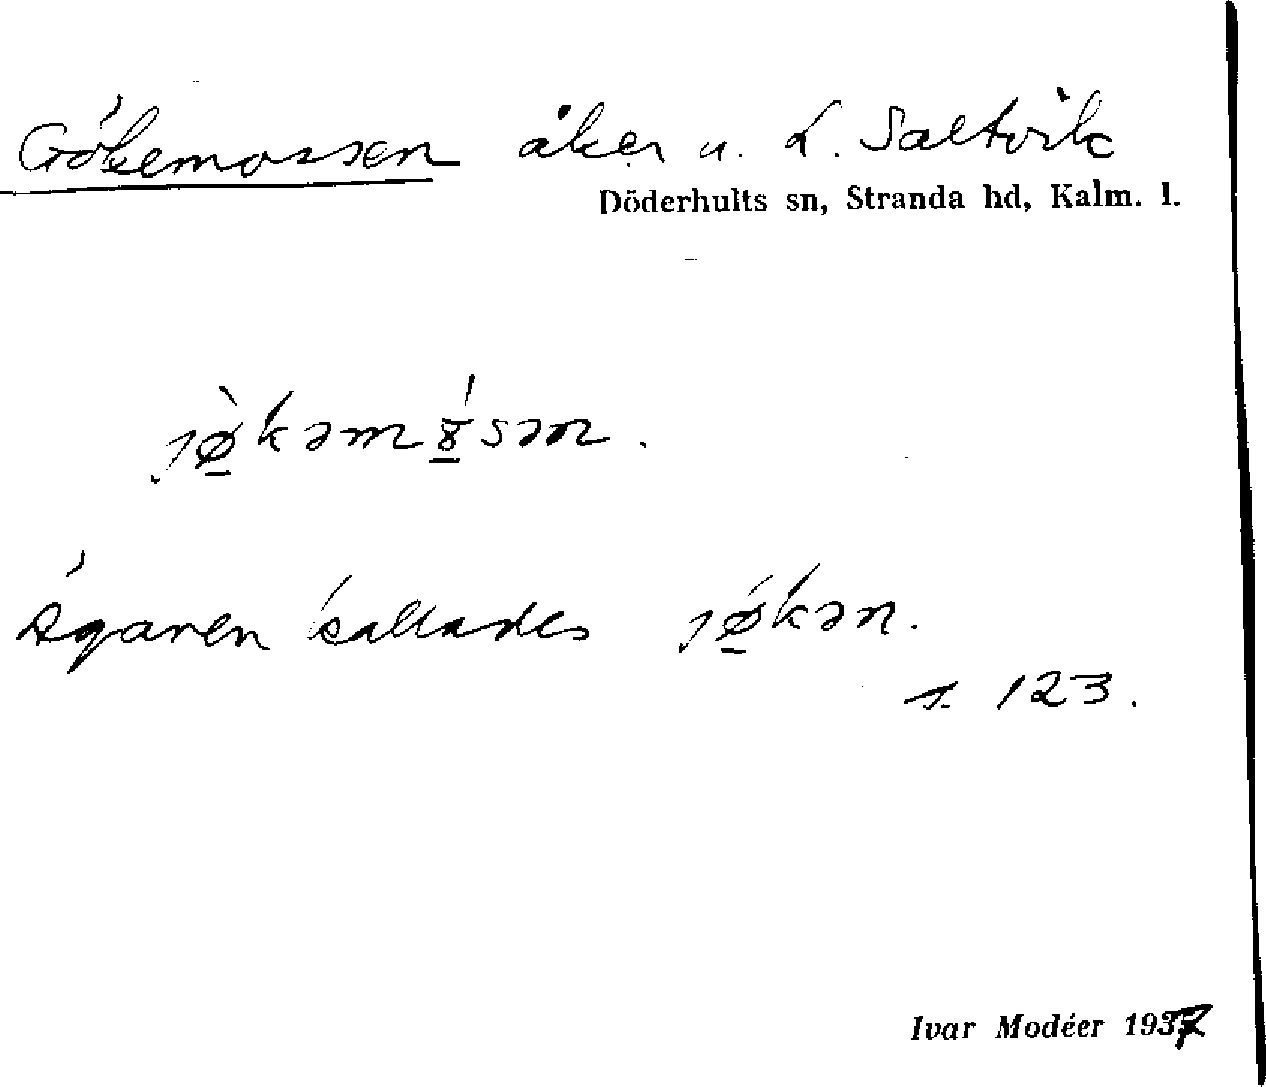 Gökemossen åker u. L. Saltvik
Döderhults sn, Stranda hd, Kalm. l.
jø̀kəmɤ́sən.
Ägaren kallades jǿkən.
s. 123.
Ivar Modéer 1937